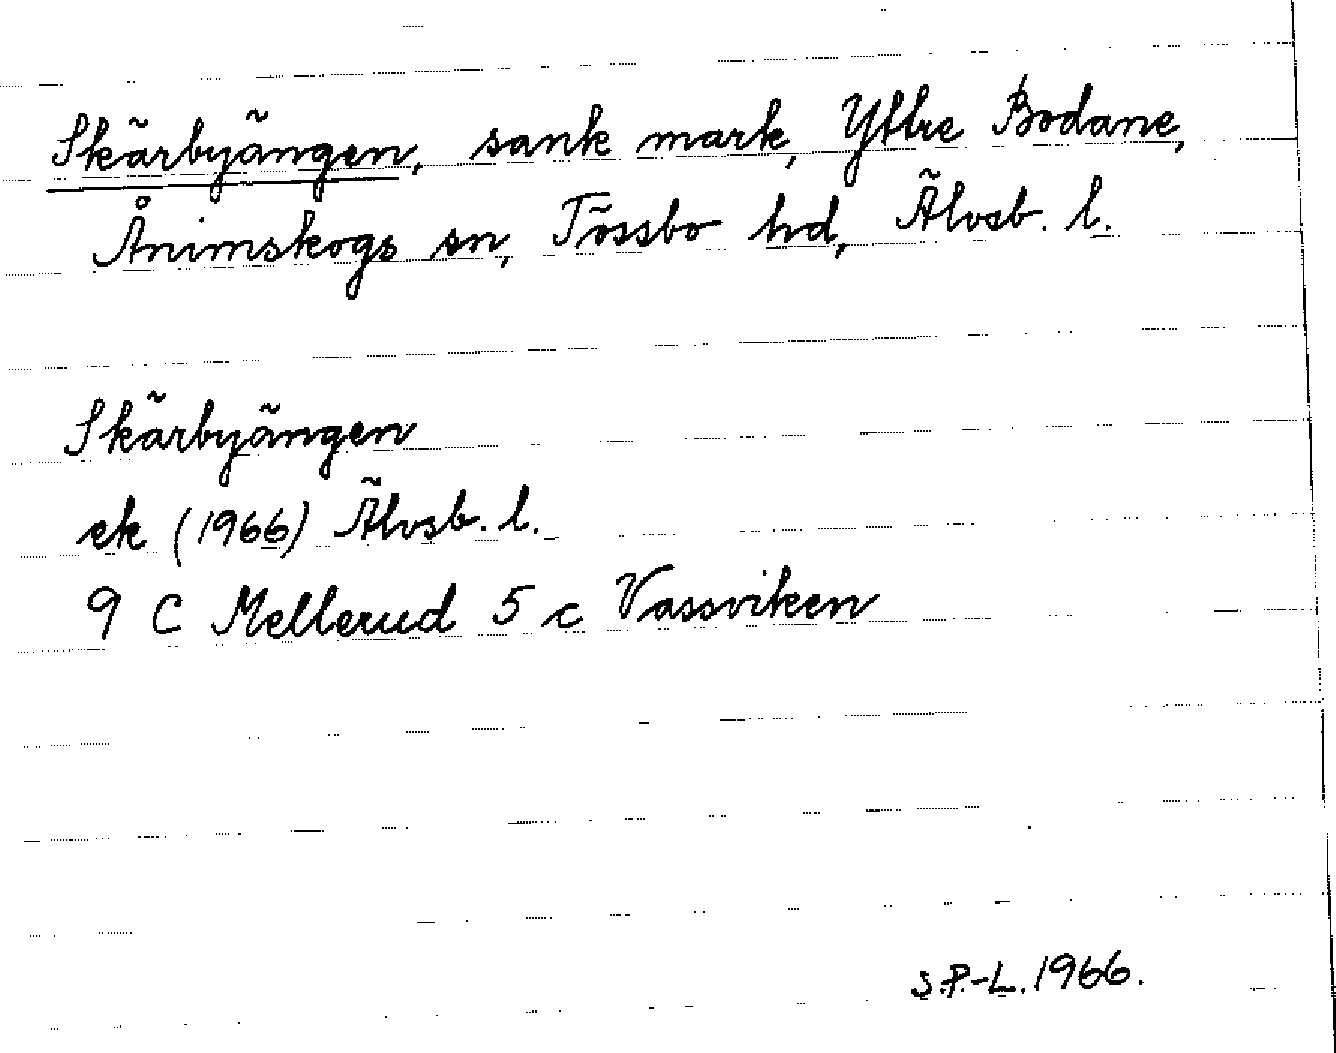 Skärbyängen, sank mark, Yttre Bodane,
Ånimskogs sn, Tössbo hd, Älvsb. l.
Skärbyängen
ek (1966) Älvsb. l.
9 C Mellerud 5 c Vassviken
S.P.-L. 1966.